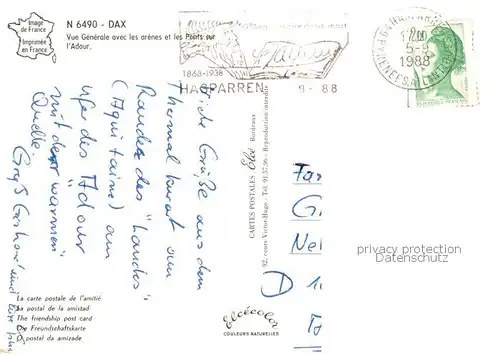 Image
de France
Imprimée
en France
N 6490 - DAX
Vue Générale avec les arènes et les Ponts sur
l'Adour.
1868-1938
HASPARREN
9-88
17 00
5-9
1988
Viele Grüße aus dem
Thermalkurort am
Rande des "Landes"
(Aquitaine) am
Ufer des "Adour"
mit der "warmen"
Quelle.
Gruß Gerhard und
CARTES POSTALES Elcé - Bordeaux
92, cours Victor-Hugo - Tél. 91.57.96 - Reproduction interdite
Fa
G
Ne
D
1
privacy protection
privacy protection
La carte postale de l'amitié
La postal de la amistad
The friendship post card
Die Freundschaftskarte
O postal da amizade
Elcécolor
COULEURS NATURELLES